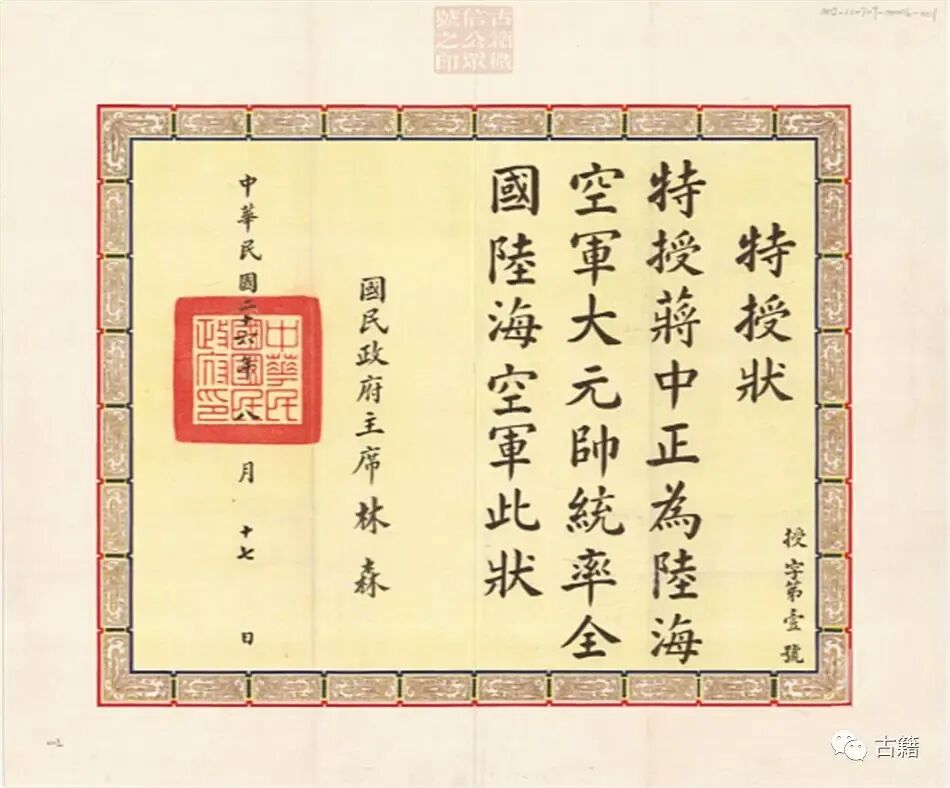 特授狀
授字第壹號
特授蔣中正為陸海
空軍大元帥統率全
國陸海空軍此狀
國民政府主席林森
中華民國二十六年八月十七日
中華民
國國民
政府印
古籍微
信公眾
號之印
古籍